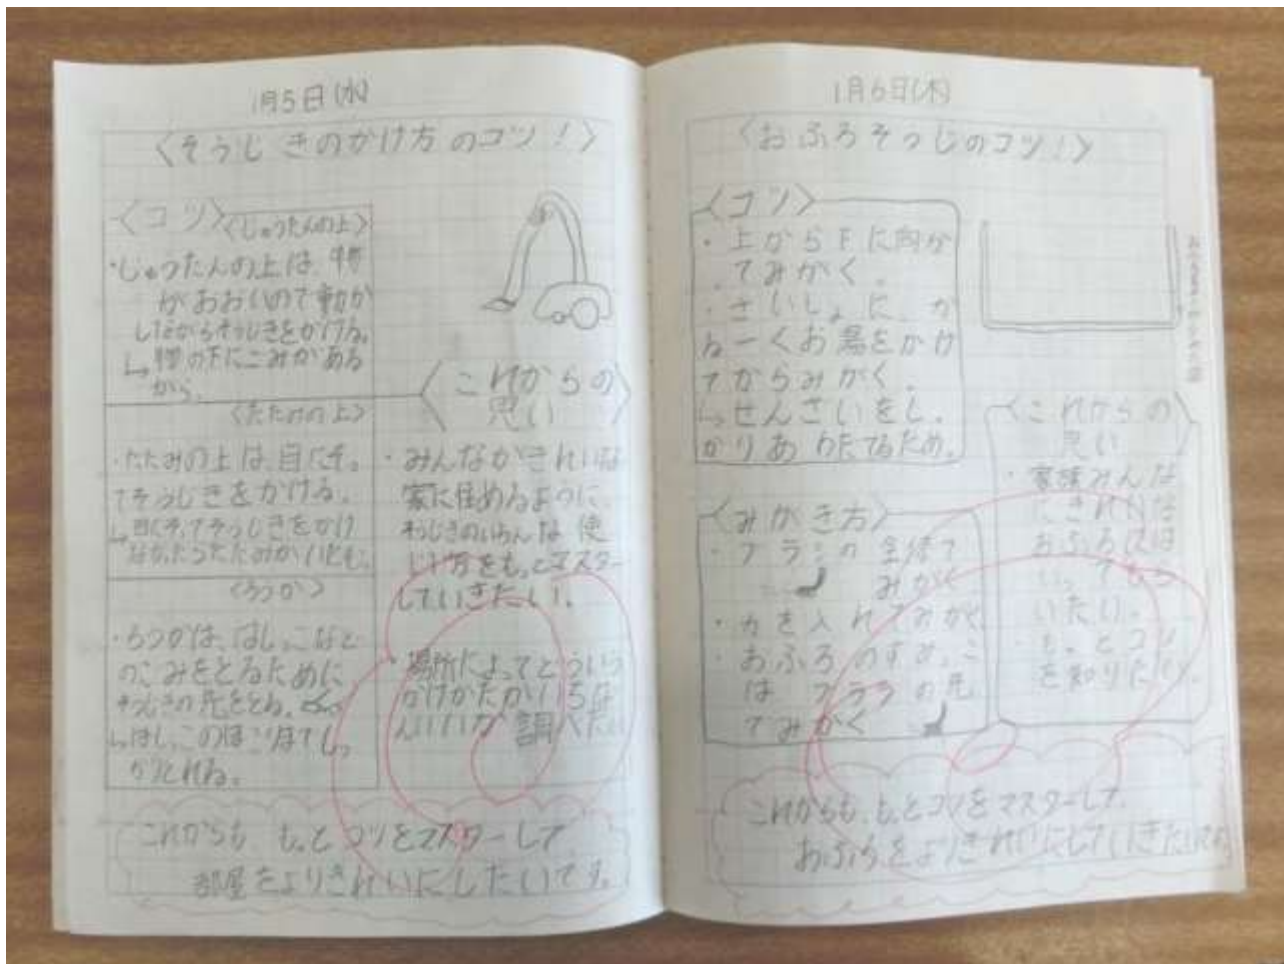 1月5日(水)
〈そうじきのかけ方のコツ！〉
〈コツ〉
〈じゅうたんの上〉
・じゅうたんの上は、物
がおおいので動か
しながらそうじきをかける。
↳物の下にごみがある
から。
〈たたみの上〉
・たたみの上は、目にそっ
てそうじきをかける。
↳目にそってそうじきをかけ
なかったらたたみが
〈ろうか〉
・ろうかは、はしっこなど
のごみをとるために
そうじきの先をとる。
↳はしっこのほこりまでしっ
かりとれる。
〈これからの
思い〉
・みんながきれいな
家に住めるように、
そうじきのいろんな使
い方をもっとマスター
していきたい。
・場所によってどういう
かけかたがいちば
んいいか調べたい
これからも、もっとコツをマスターして、
部屋をよりきれいにしたいです。
1月6日(木)
〈おふろそうじのコツ！〉
〈コツ〉
・上から下に向か
ってみがく。
・さいしょに、か
るーくお湯をかけ
てからみがく。
↳せんざいをしっ
かりあわだてるため。
〈みがき方〉
・ブラシの全体で
みがく
・力を入れてみがく
・おふろのすみっこ
は ブラシの先
でみがく
〈これからの
思い〉
・家族みんな
にきれいな
おふろには
いってもら
いたい。
・もっとコツ
を知りたい。
これからも、もっとコツをマスターして、
おふろをよりきれいにしていきたいです